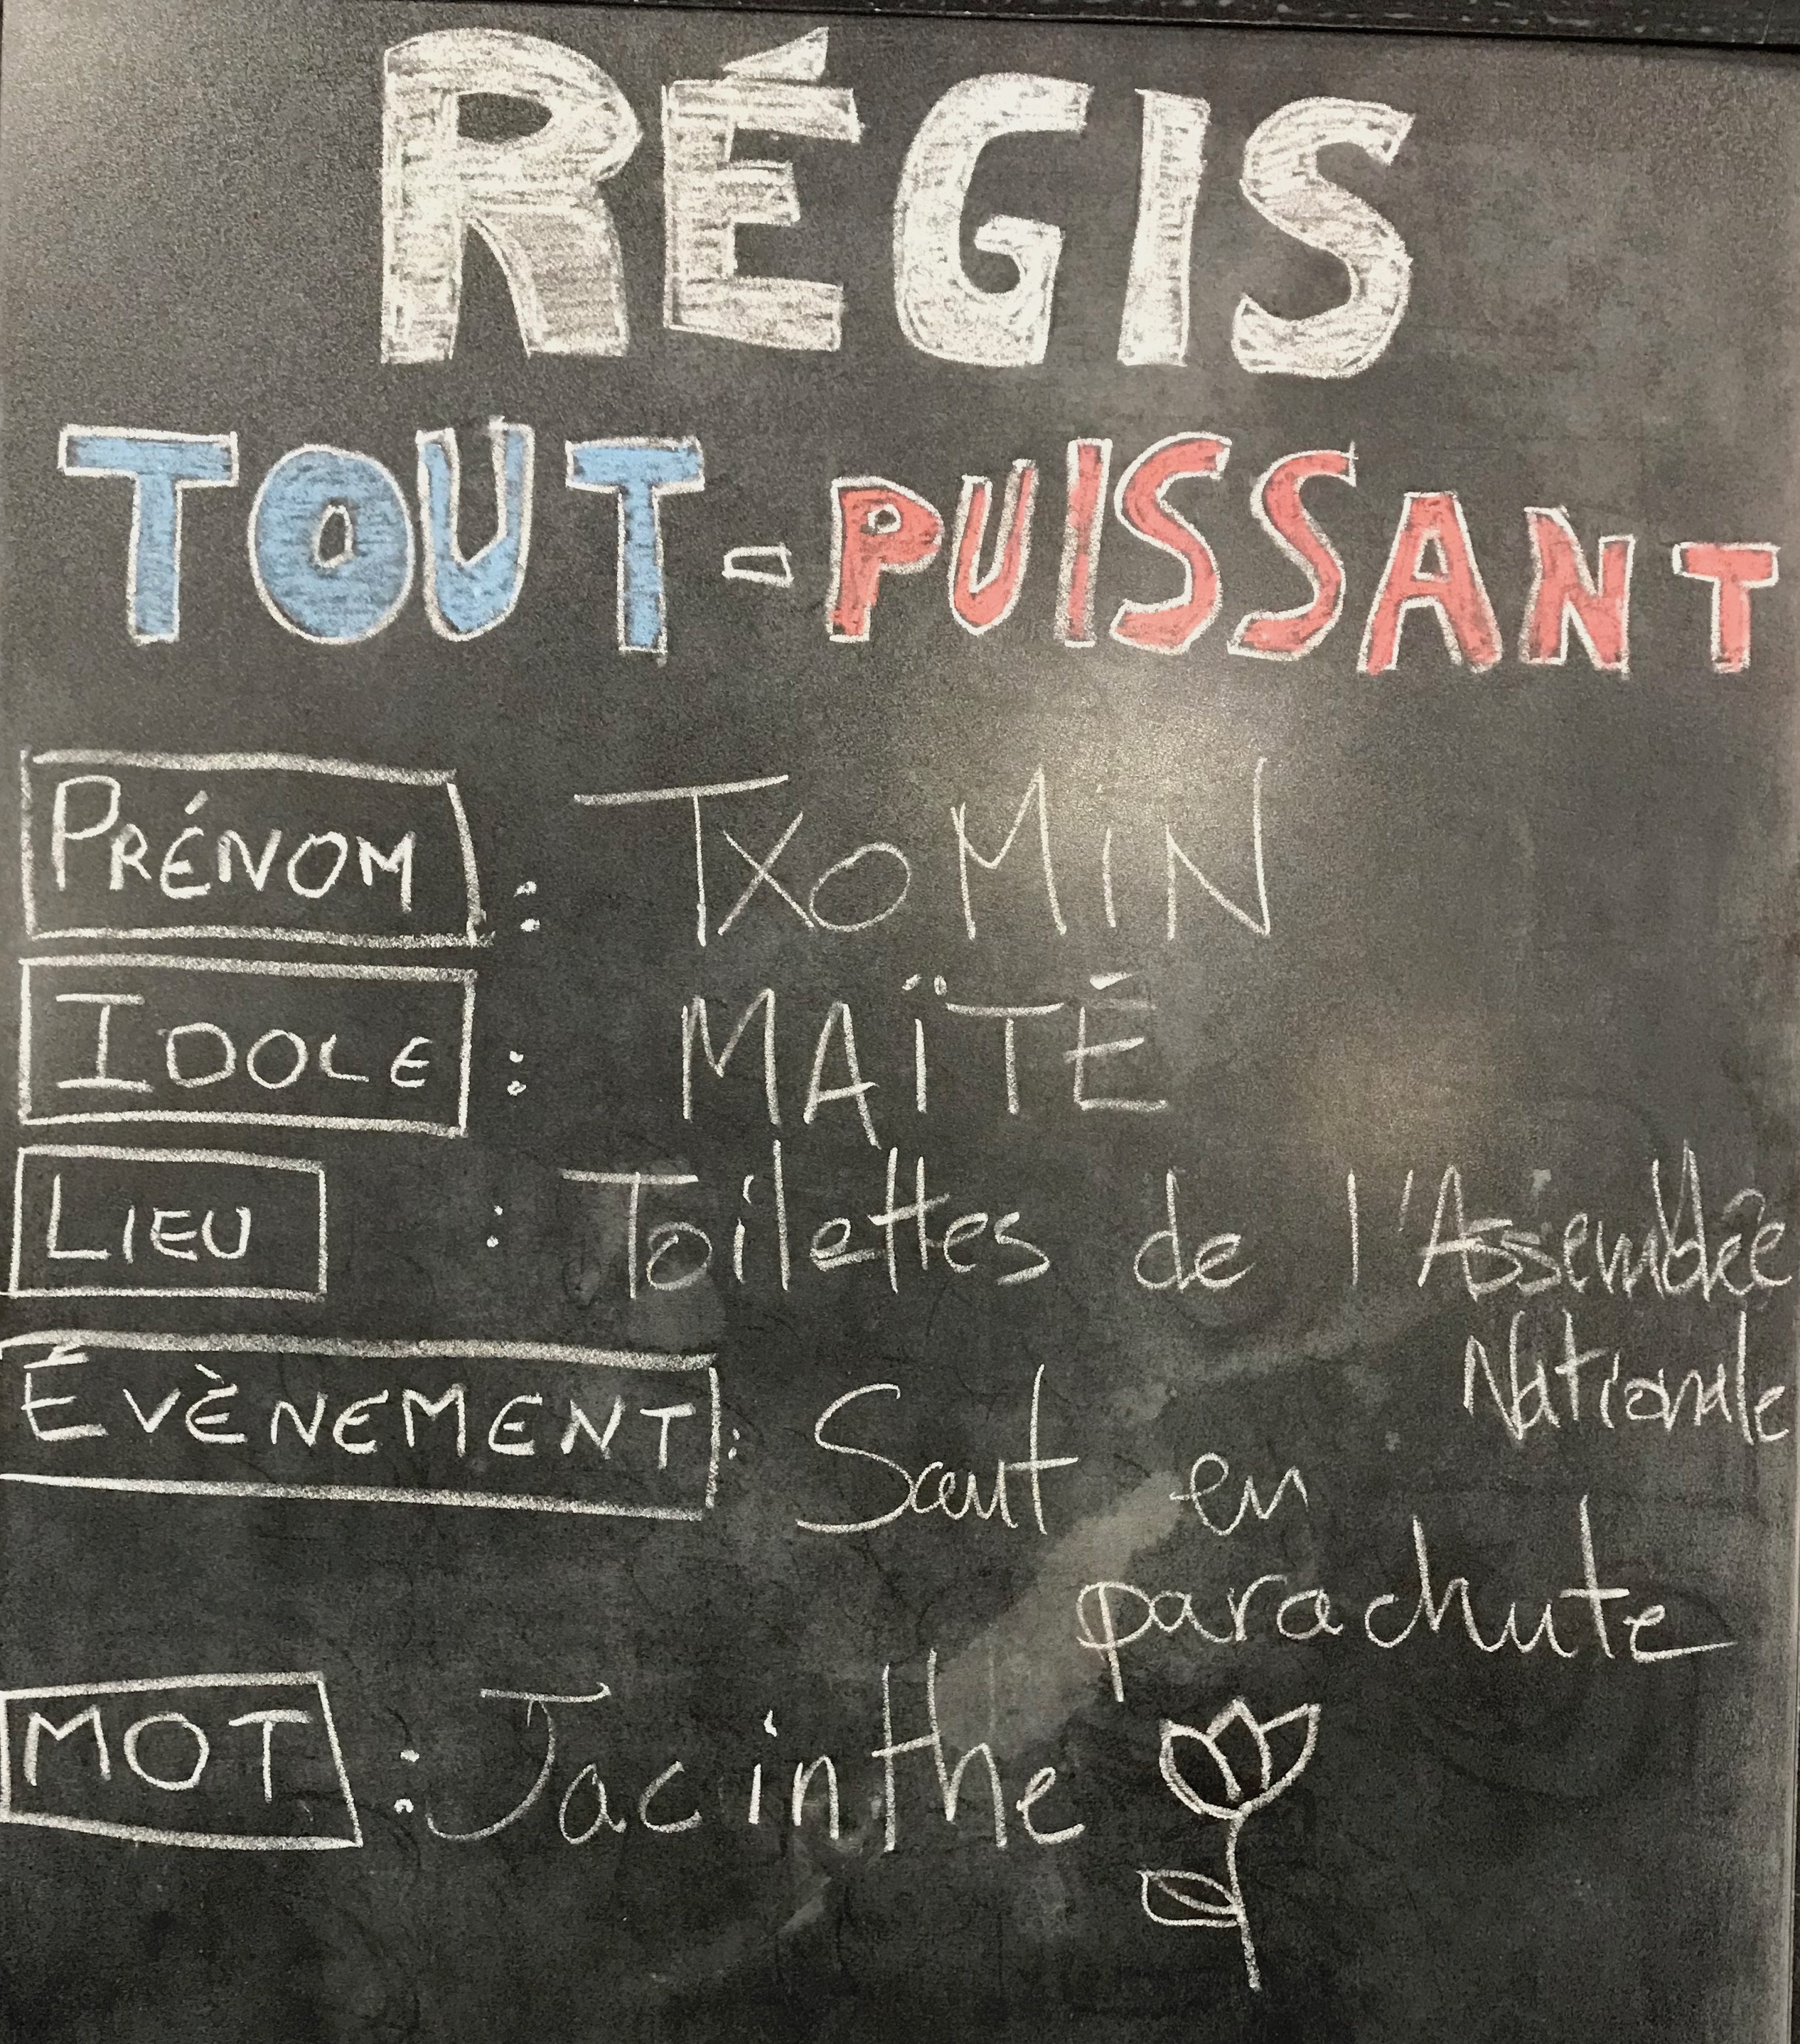 RÉGIS
TOUT-PUISSANT
PRÉNOM : TXOMiN
IDOLE : MAÏTÉ
LIEU : Toilettes de l'Assemblée
Nationale
ÉVÈNEMENT : Saut en
parachute
MOT : Jacinthe